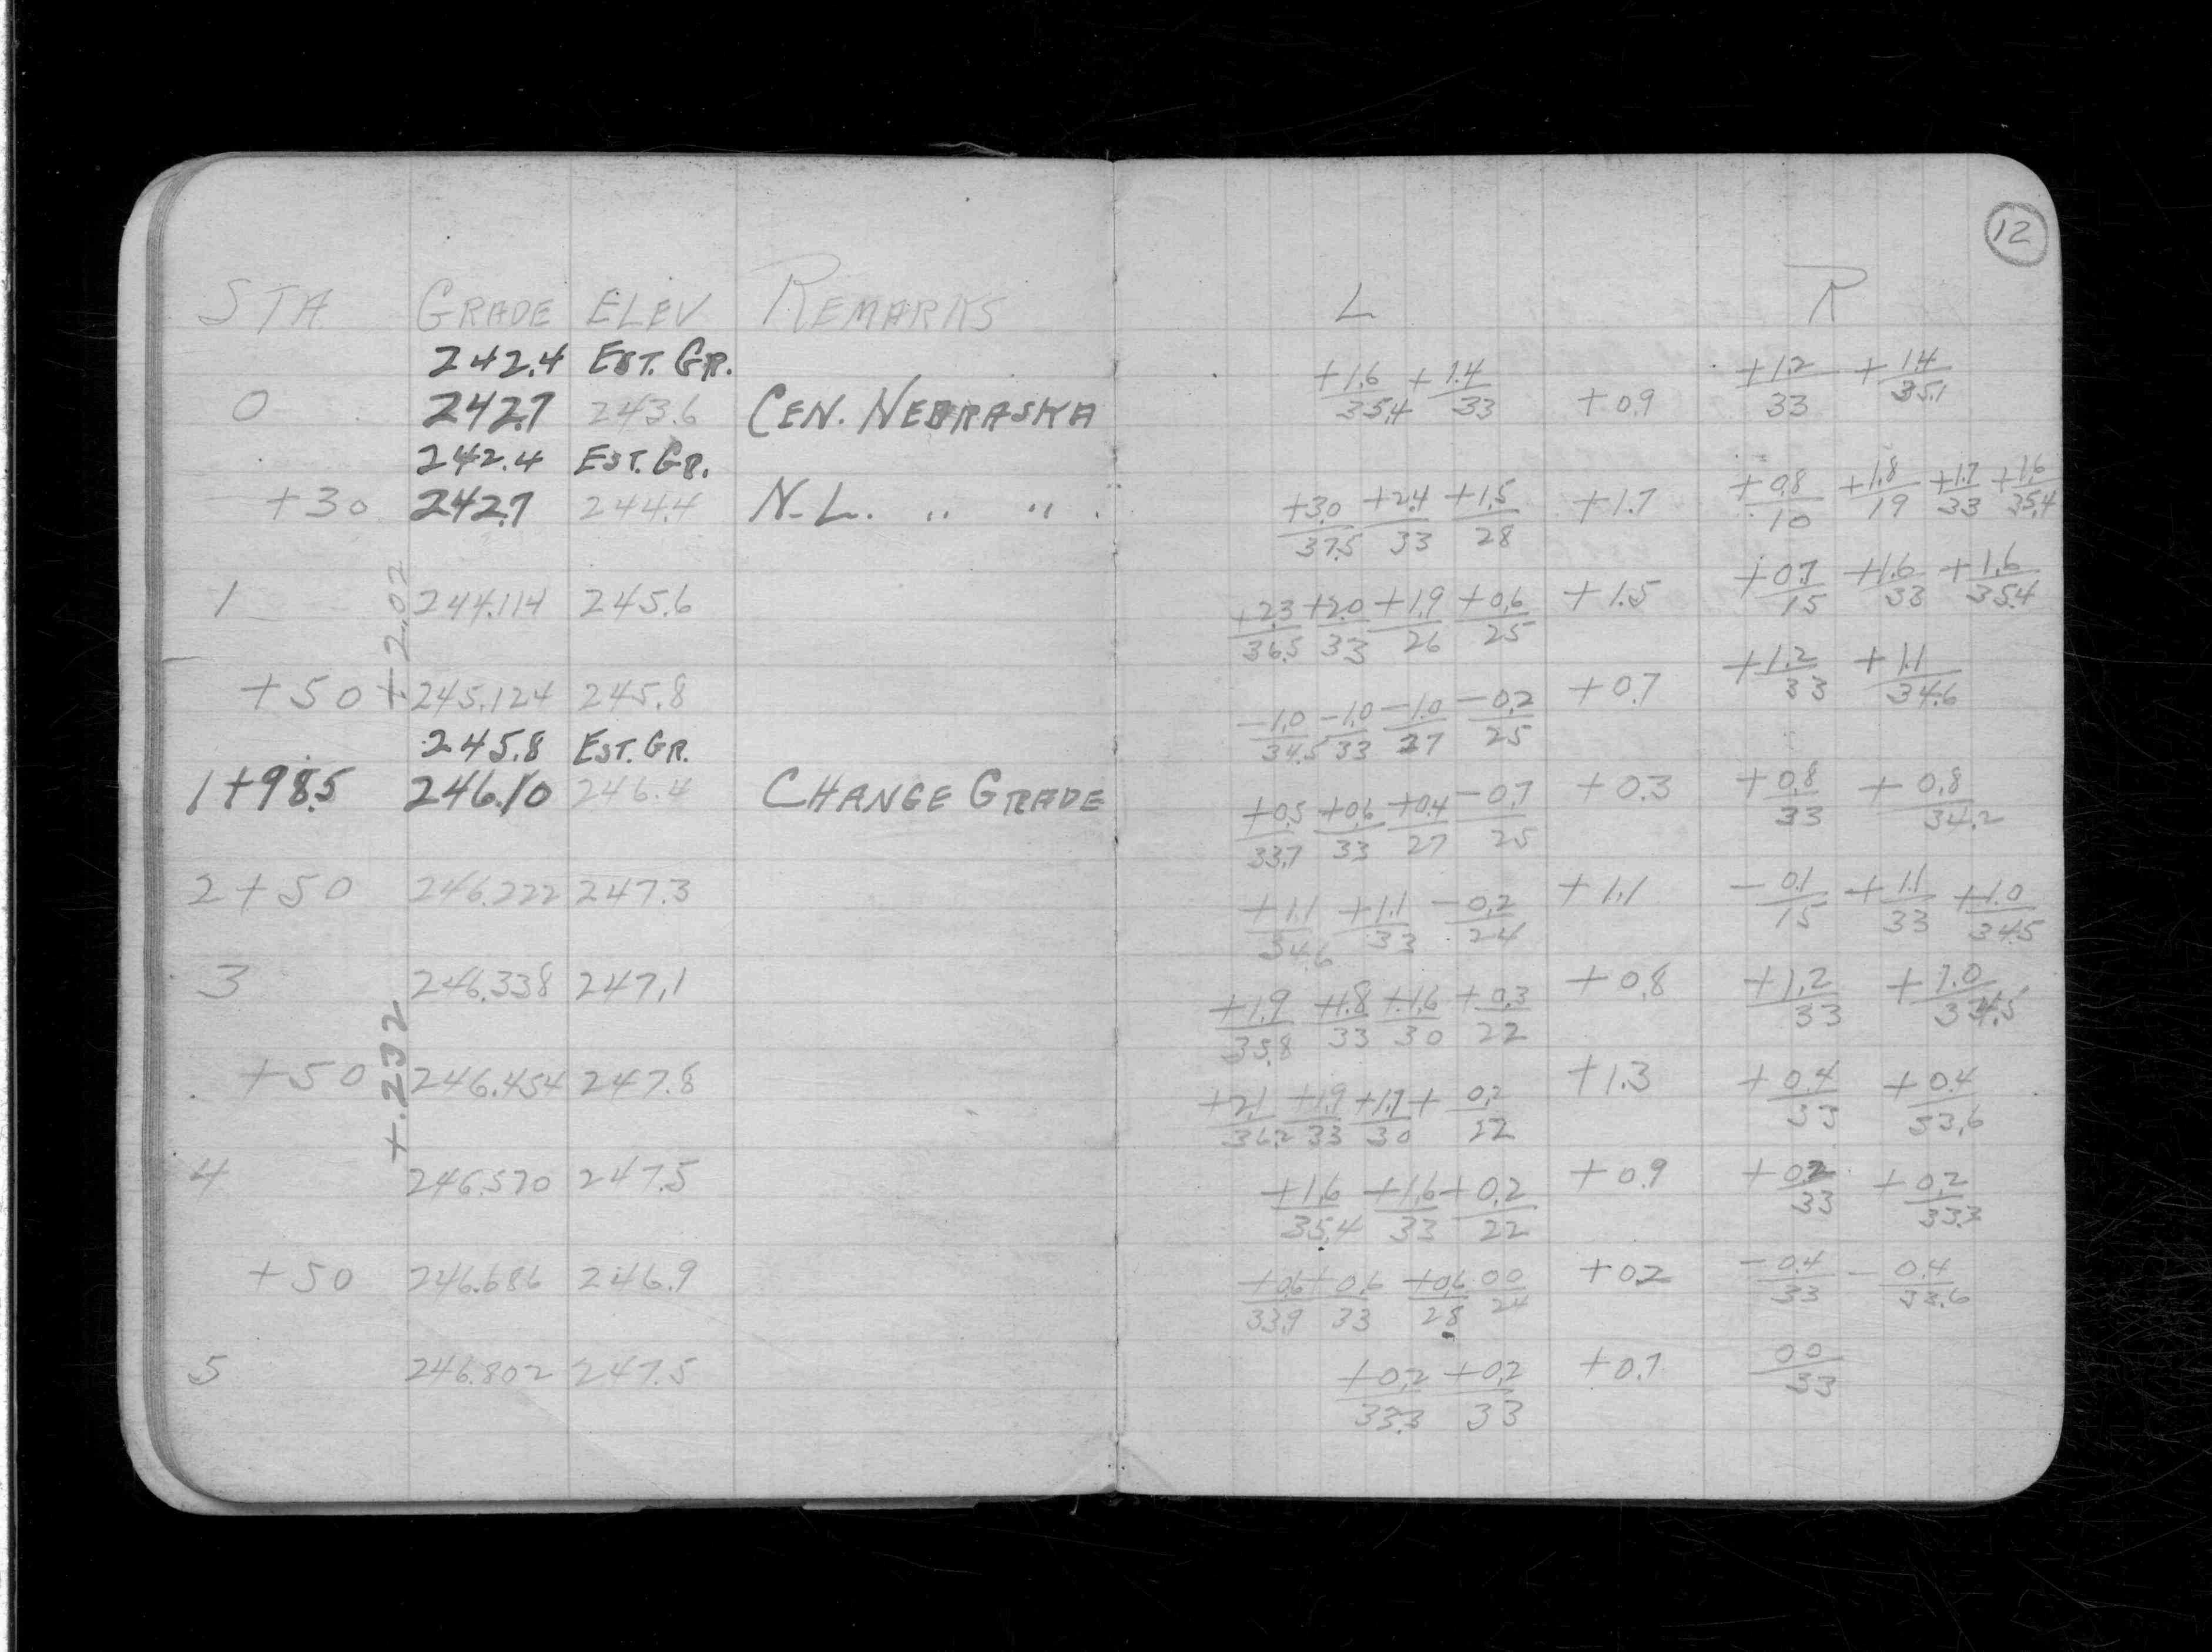 12
STA. GRADE ELEV REMARKS L R
242.4 EST. GR.
0 242.7 243.6 CEN. NEBRASKA +1.6/35.4 +1.4/33 +0.9 +1.2/33 +1.4/35.1
242.4 EST. GR.
+30 242.7 244.4 N.L. " " +3.0/37.5 +2.4/33 +1.5/28 +1.7 +0.8/10 +1.8/19 +1.7/33 +1.6/35.4
1 244.114 245.6 +2.3/36.5 +2.0/33 +1.9/26 +0.6/25 +1.5 +0.7/15 +1.6/33 +1.6/35.4
+2.02
+50 245.124 245.8 -1.0/34.5 -1.0/33 -1.0/27 -0.2/25 +0.7 +1.2/33 +1.1/34.6
245.8 EST. GR.
1+98.5 246.10 246.4 CHANGE GRADE +0.5/33.7 +0.6/33 +0.4/27 -0.7/25 +0.3 +0.8/33 +0.8/34.2
2+50 246.222 247.3 +1.1/34.6 +1.1/33 -0.2/24 +1.1 -0.1/15 +1.1/33 +1.0/34.5
3 246.338 247.1 +1.9/35.8 +1.8/33 +1.6/30 +0.3/22 +0.8 +1.2/33 +1.0/34.5
+.232
+50 246.454 247.8 +2.1/36.2 +1.9/33 +1.7/30 +0.2/22 +1.3 +0.4/33 +0.4/33.6
4 246.570 247.5 +1.6/35.4 +1.6/33 +0.2/22 +0.9 +0.2/33 +0.2/33.3
+50 246.686 246.9 +0.6/33.9 +0.6/33 +0.6/28 00/24 +0.2 -0.4/33 -0.4/33.6
5 246.802 247.5 +0.2/33.3 +0.2/33 +0.7 00/33